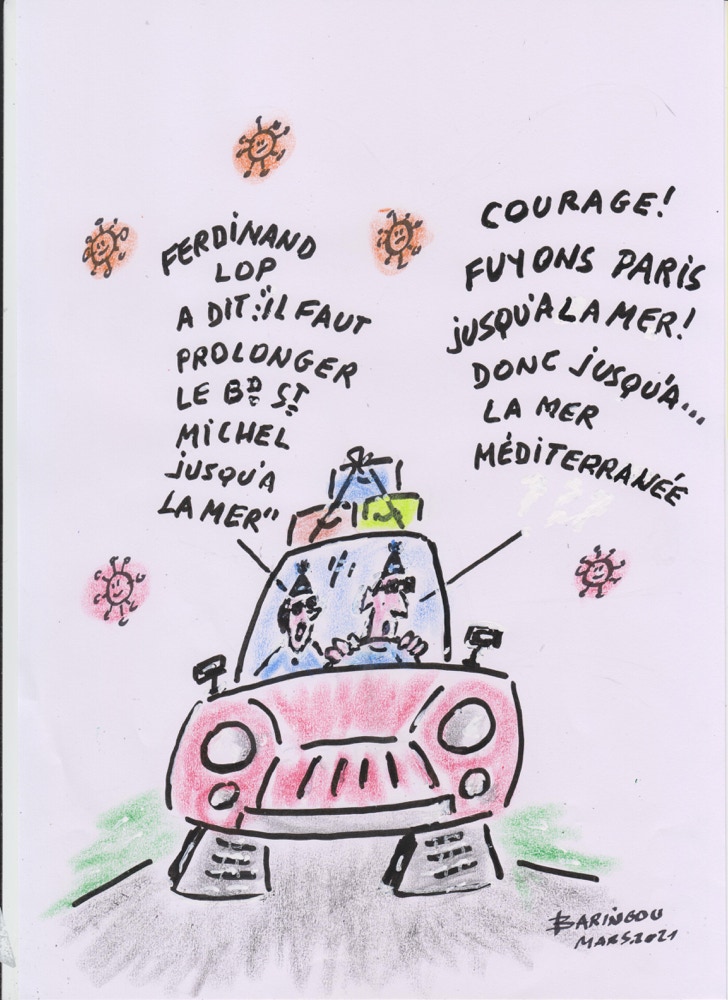 FERDINAND
LOP
A DIT:"IL FAUT
PROLONGER
LE BD ST
MICHEL
JUSQU'A
LA MER"
COURAGE!
FUYONS PARIS
JUSQU'A LA MER!
DONC JUSQU'A...
LA MER
MÉDITERRANÉE
BARINGOU
MARS.2021